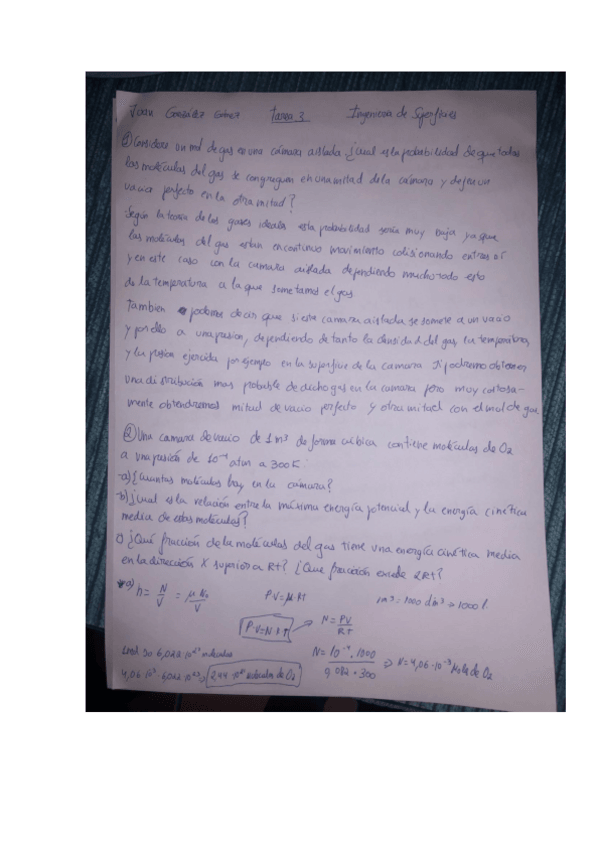 Juan González Gómez Tarea 3 Ingenieria de Superficies
① Considera un mol de gas en una cámara aislada ¿cual es la probabilidad de que todas
las moléculas del gas se congreguen en una mitad de la cámara y dejen un
vacio perfecto en la otra mitad?
Según la teoria de los gases ideales esta probabilidad seria muy baja ya que
las moléculas del gas estan en continuo movimiento colisionando entre si
y en este caso con la camara aislada dependiendo mucho todo esto
de la temperatura a la que sometamos el gas
Tambien podemos decir que si esta camara aislada se somete a un vacio
y por ello a una presion, dependiendo de tanto la densidad del gas, la temperatura
y la presion ejercida por ejemplo en la superficie de la camara si podremos obtener
una distribución mas probable de dicho gas en la camara pero muy
mente obtendremos mitad de vacio perfecto y otra mitad con el mol de gas.
② Una camara de vacio de 1 m³ de forma cúbica contiene moléculas de O₂
a una presión de 10⁻⁴ atm a 300 K:
-a) ¿Cuantas moléculas hay en la cámara?
-b) ¿cual es la relación entre la máxima energía potencial y la energía cinética
media de estas moléculas?
c) ¿Qué fracción de la moléculas del gas tiene una energía cinética media
en la dirección X superior a RT? ¿Que fracción excede 2RT?
a) n = N/V = μN₀/V PV = μRT 1m³ = 1000 dm³ → 1000 l
PV = NRT → N = PV/RT
1 mol 6,022 · 10²³ moléculas N = 10⁻⁴ · 1000 / 0,082 · 300 ⇒ N = 4,06 · 10⁻³ Moles de O₂
4,06 · 10⁻³ · 6,022 · 10²³ ⇒ 2,44 · 10²¹ moléculas de O₂